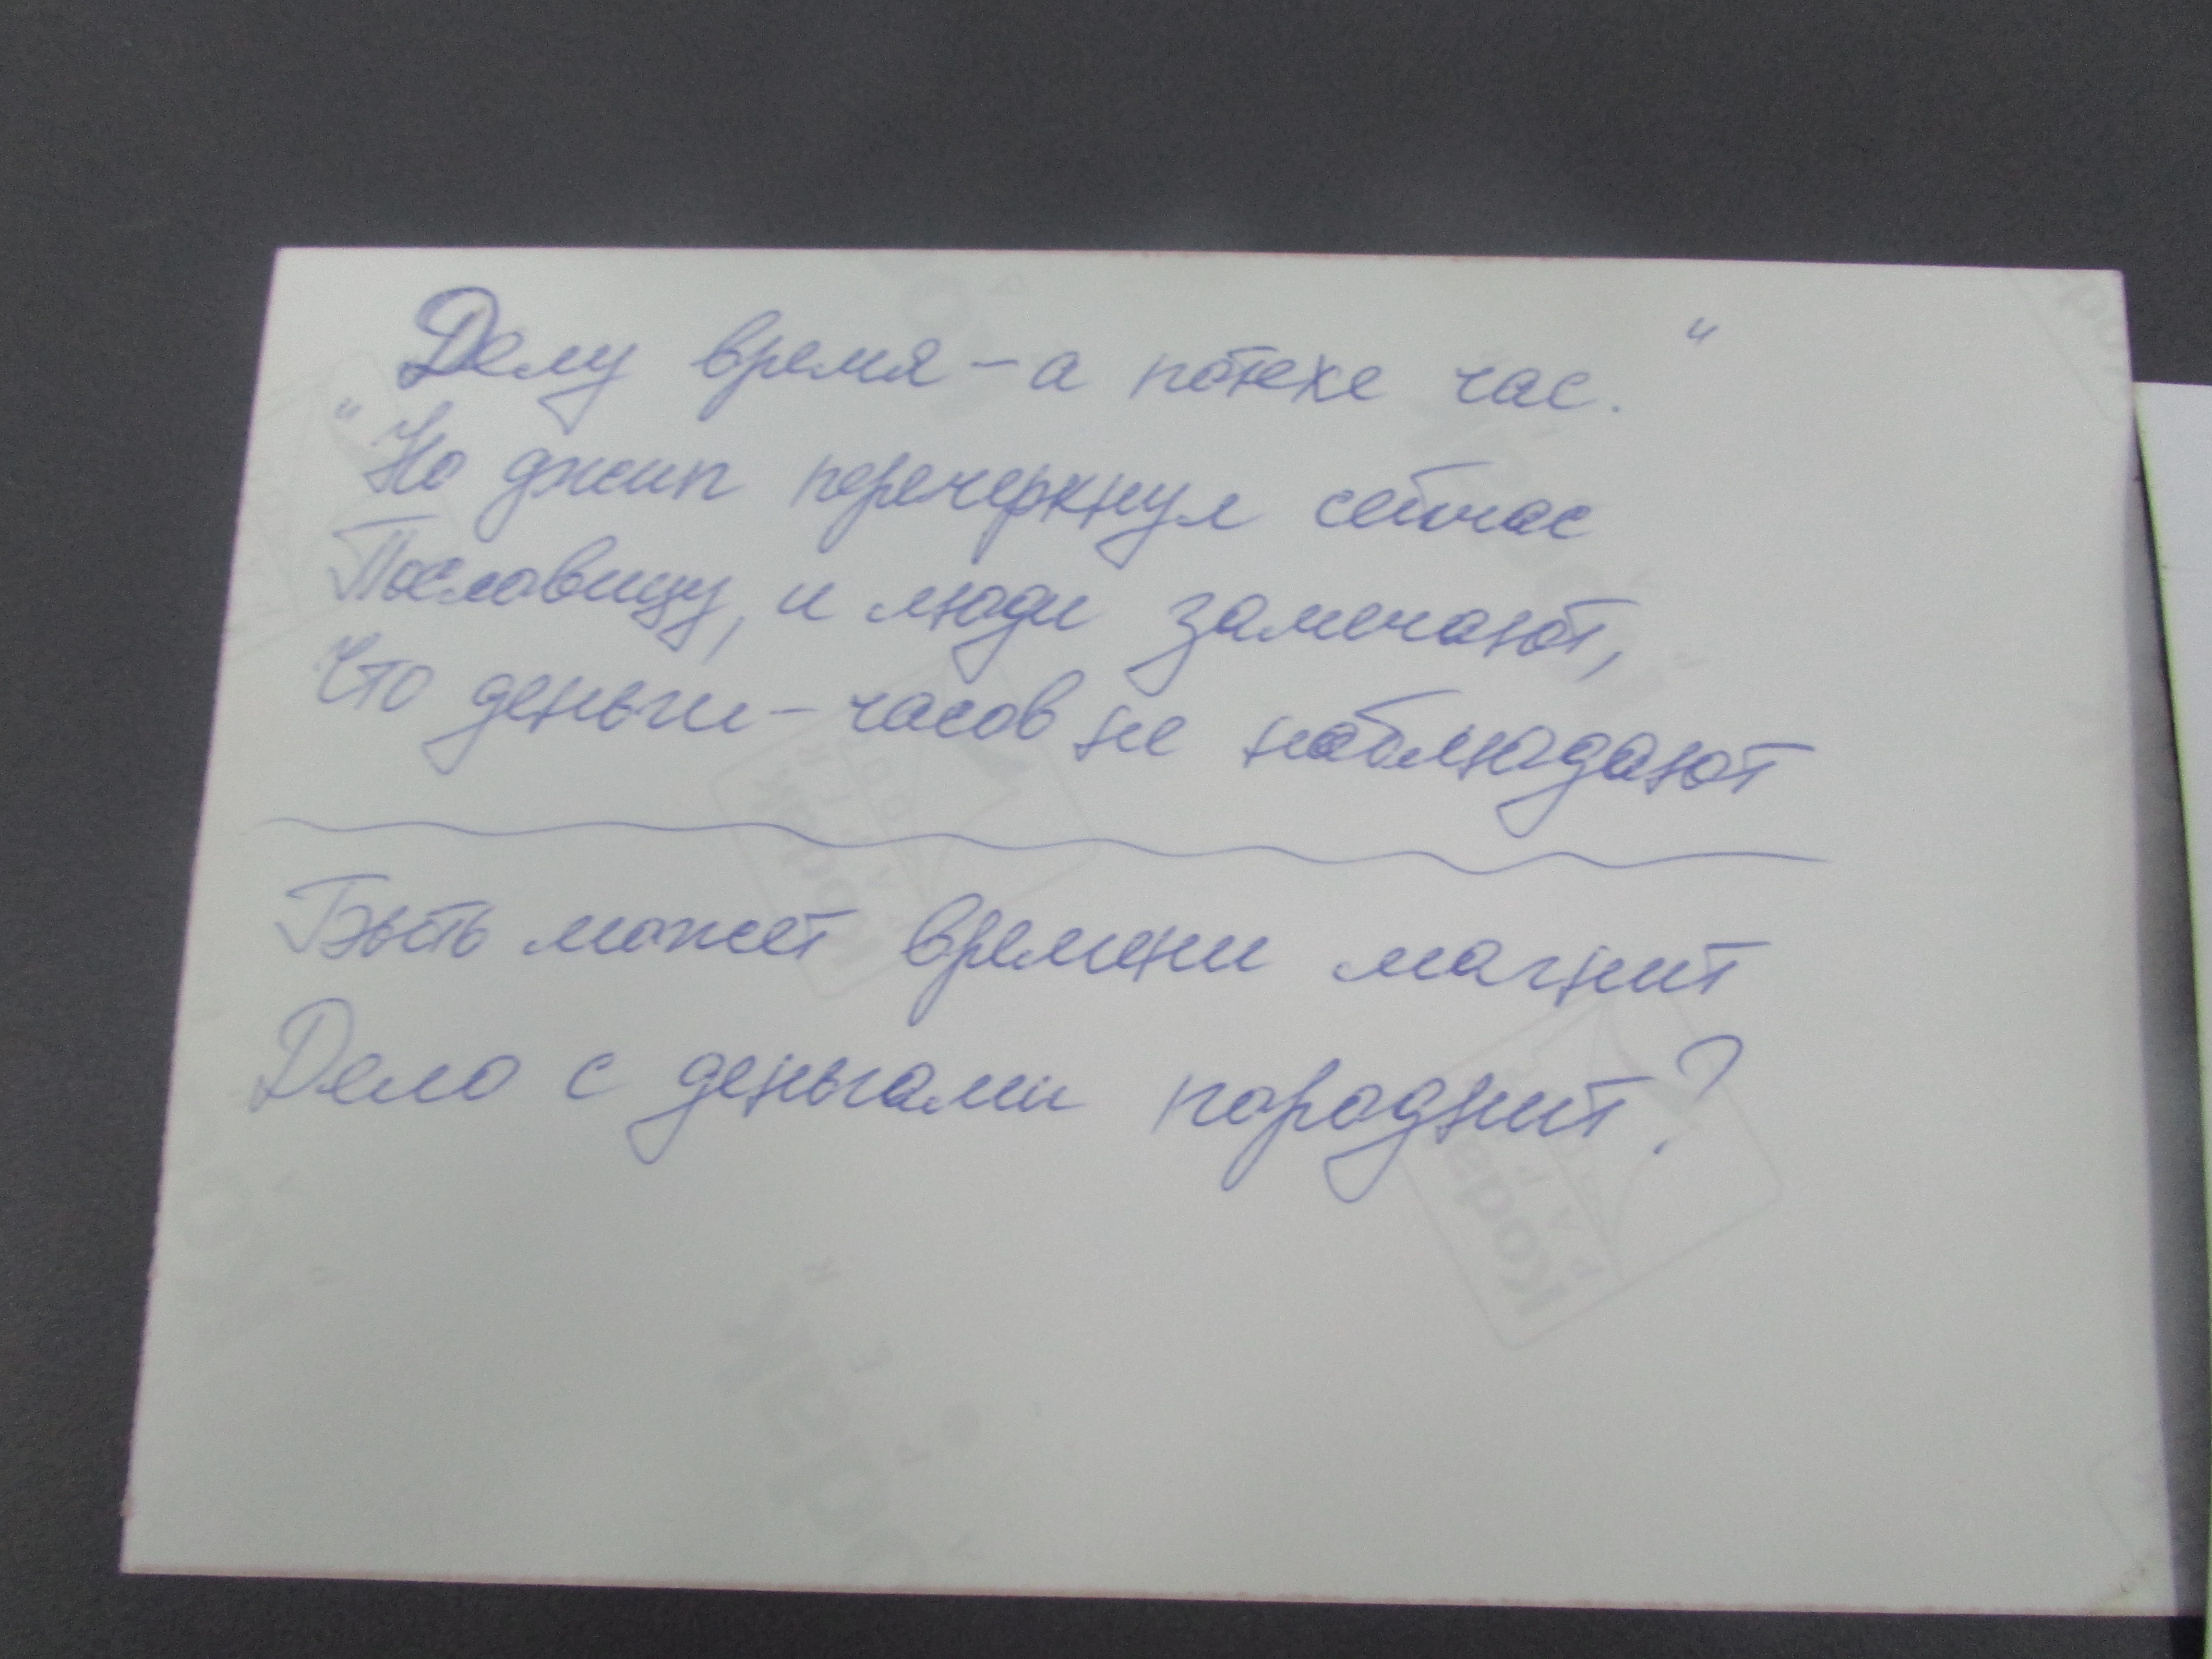 Делу время – а потехе час."
"Но джип перечеркнул сейчас
Пословицу, и люди замечают,
Что деньги – часов не наблюдают
Быть может времени магнит
Дело с деньгами породнит?
Kodak
Kodak